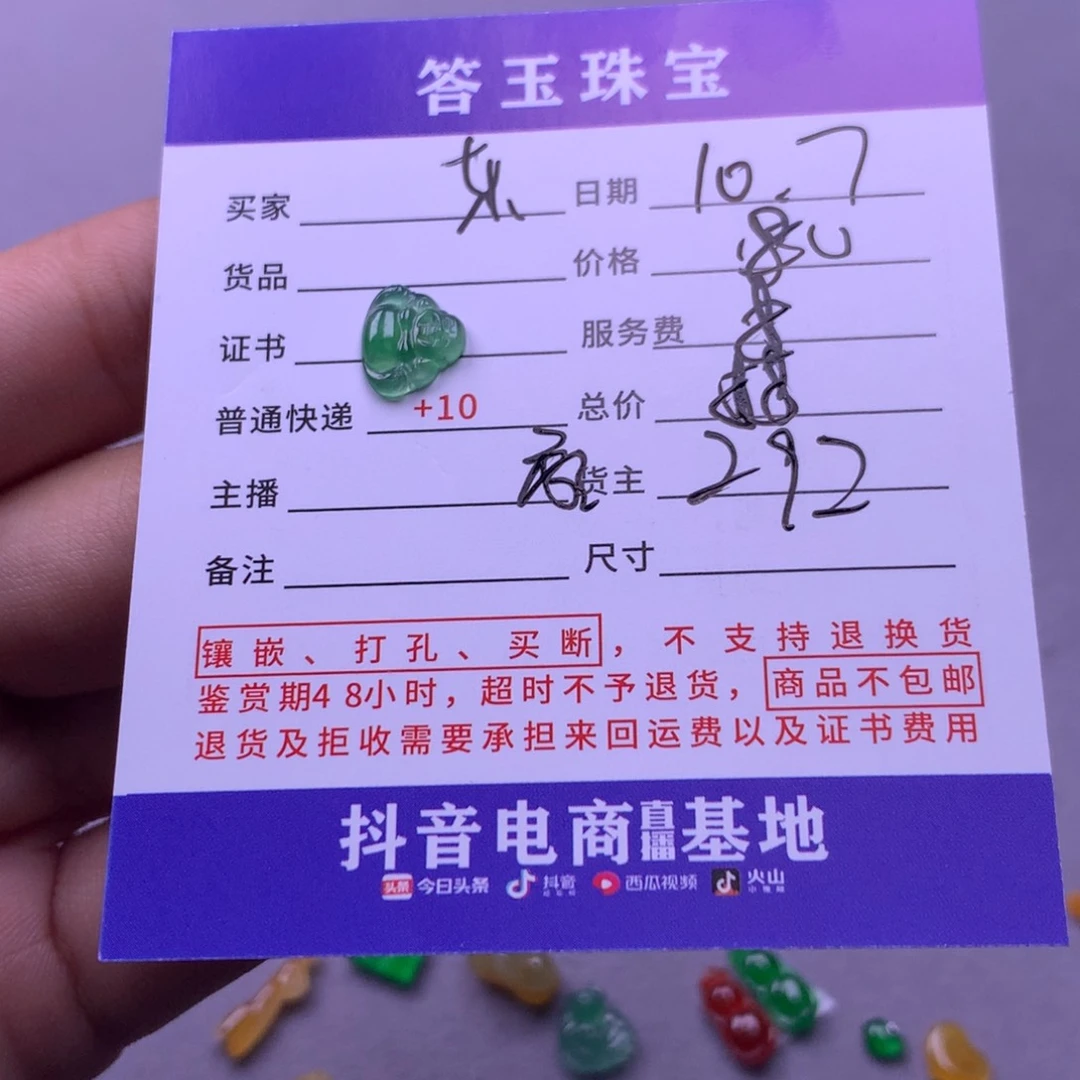 答玉珠宝
买家 日期 10.7
货品 价格
证书 服务费
普通快递 +10 总价
主播 货主 292
备注 尺寸
镶嵌、打孔、买断，不支持退换货
鉴赏期48小时，超时不予退货，商品不包邮
退货及拒收需要承担来回运费以及证书费用
抖音电商直播基地
头条 今日头条 抖音 西瓜视频 火山